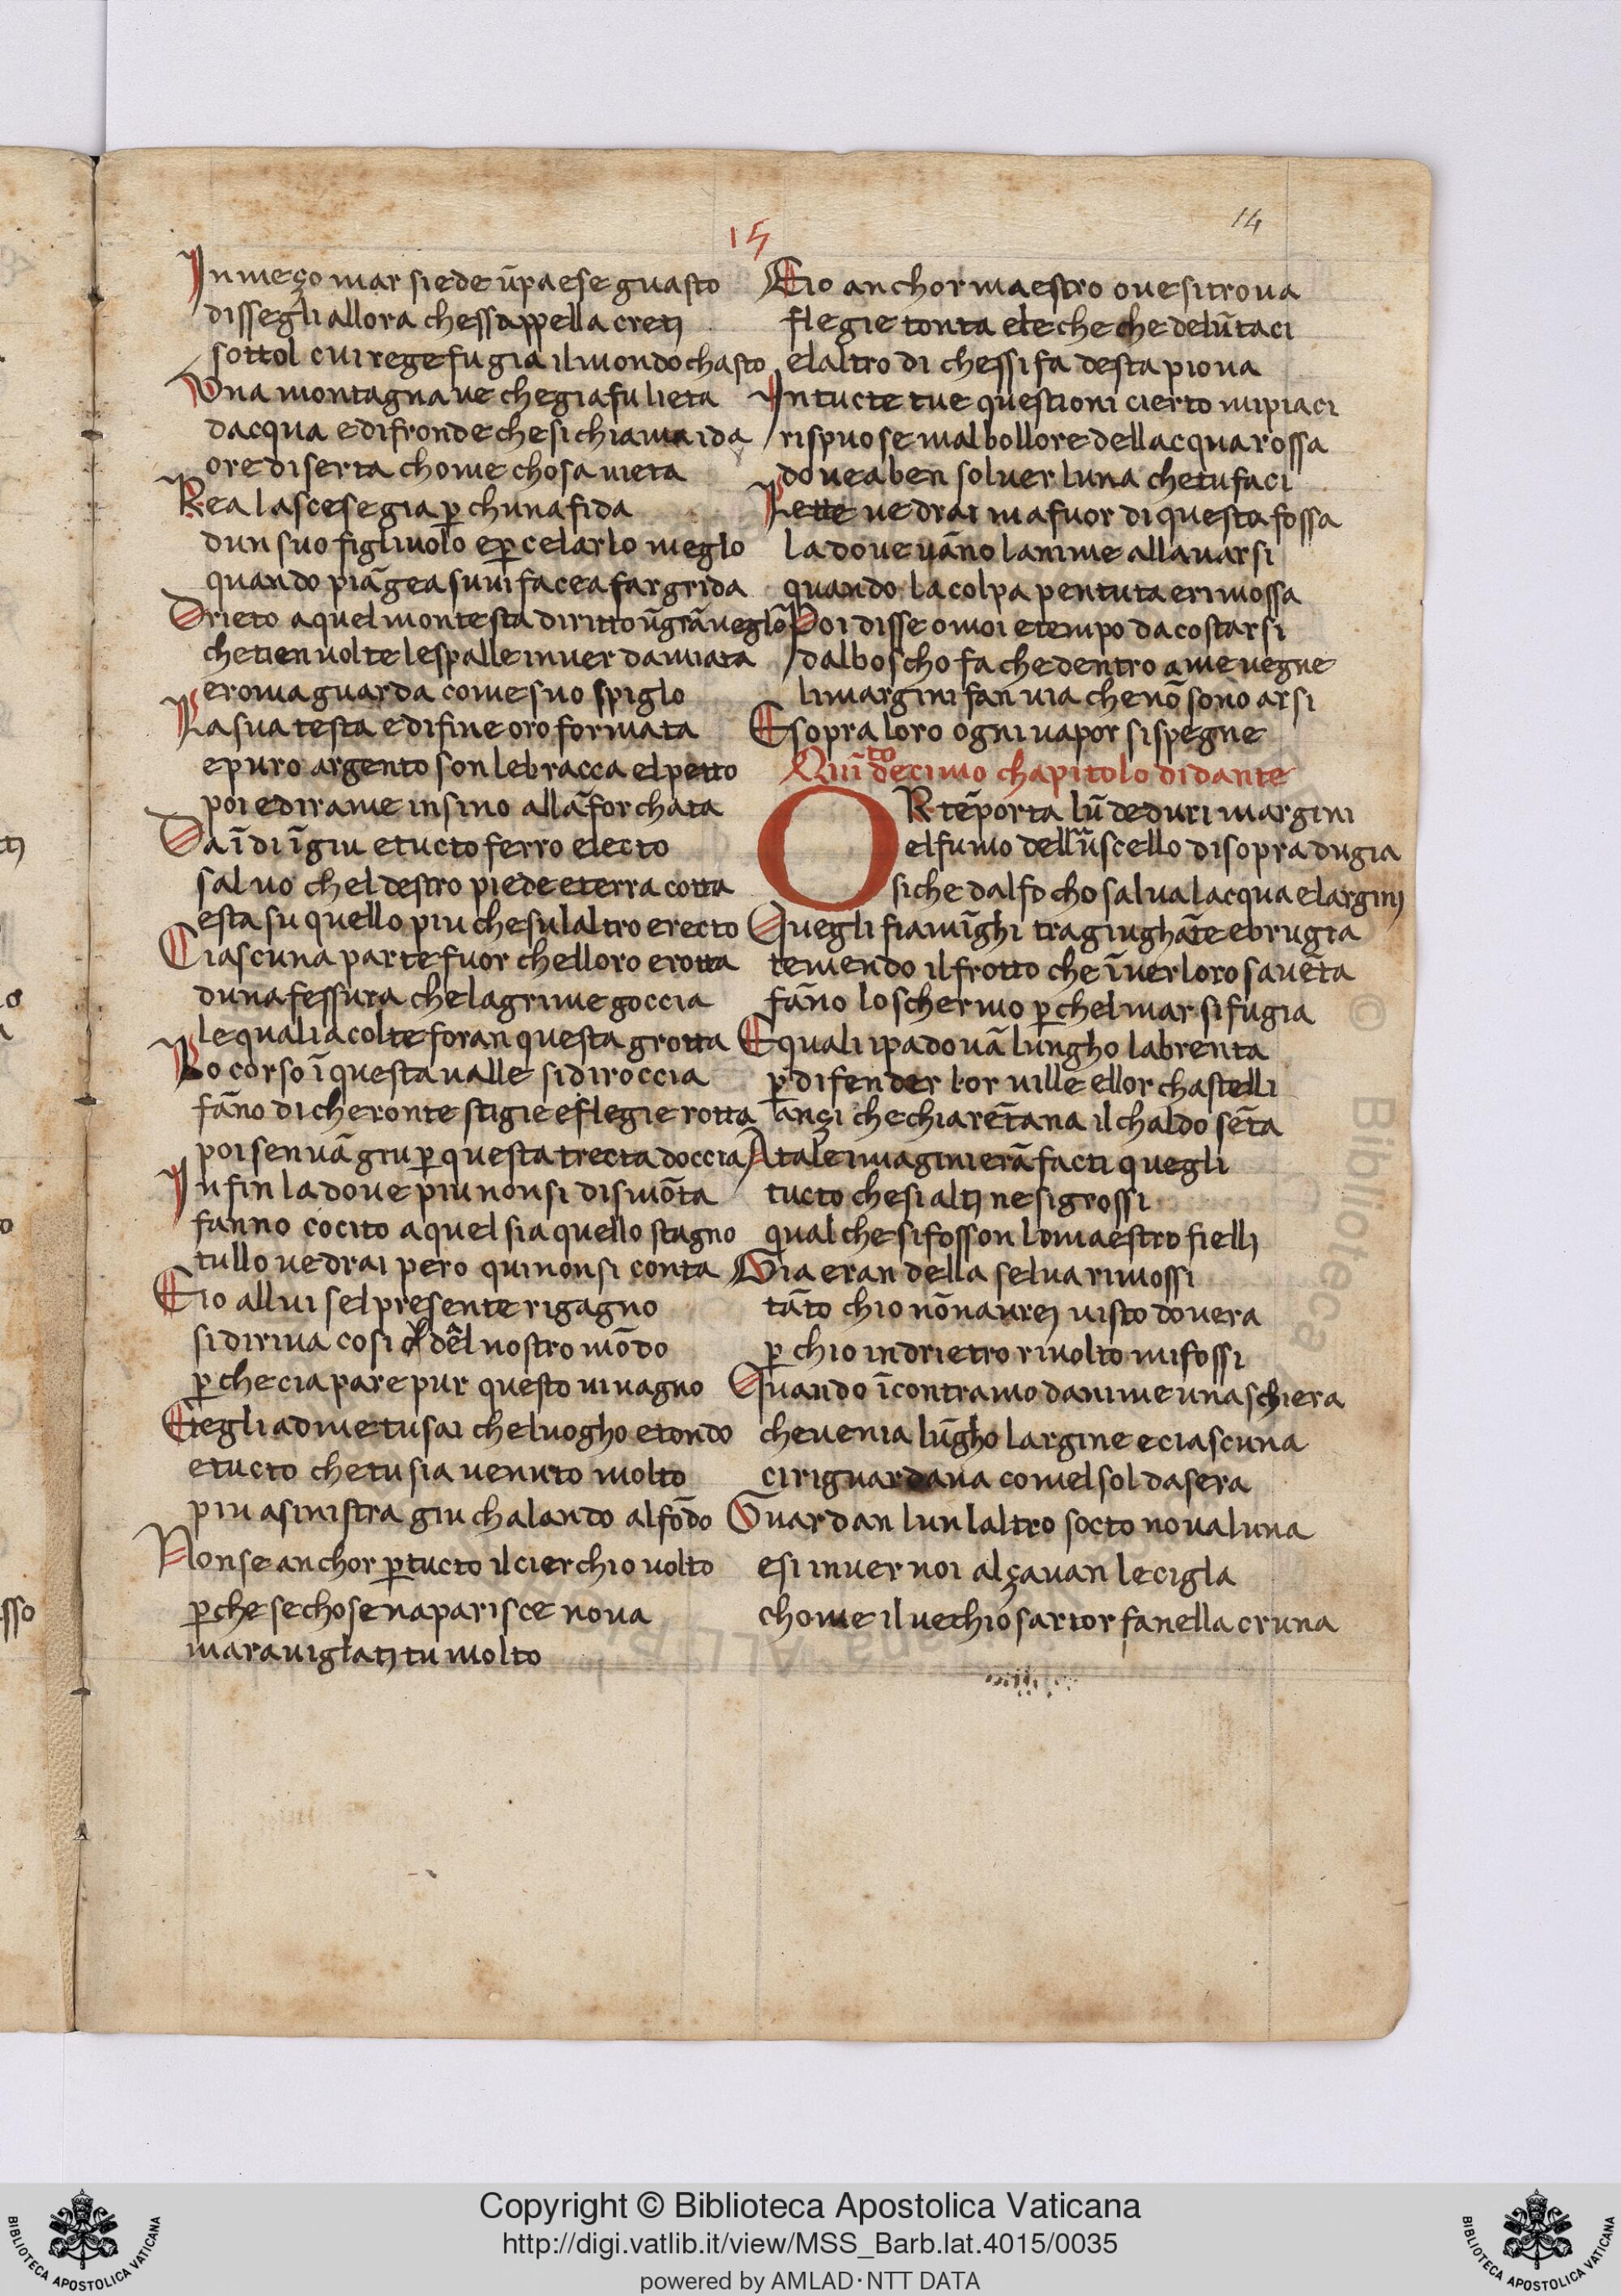 15
14
In meço mar siede ūpaese guasto
dissegli allora chessappella cretj
sottol cui rege fu gia il mondo chasto
Una montagna ue che gia fu lieta
dacqua e di fronde che si chiama ida
ore diserta chome chosa uieta
Rea la scese gia p̲ chuna fida
dun suo figliuolo e p̲ celarlo meglo
quando piāgea su ui facea far grida
Drieto a quel monte sta diritto ū grā ueglo
che tien uolte le spalle inuer damiata
e roma guarda come suo spiglo
La sua testa e di fine oro formata
e puro argento son le bracca el petto
poi e di rame insino alla forchata
Da īdi īgiu e tucto ferro electo
saluo chel destro piede e terra cotta
e sta su quello piu che sullaltro erecto
Ciascuna parte fuor chelloro e rotta
duna fessura che lagrime goccia
le quali acolte foran questa grotta
Lo corso ī questa ualle si diroccia
fāno dicheronte stigie e flegie rotta
poi sen uā giu p̲ questa trecta doccia
Infin la doue piu non si dismōta
fanno cocito a quel sia quello stagno
tullo uedrai pero qui non si conta
E io allui sel presente rigagno
si diriua cosi del nostro mōdo
p̲che cia pare pur questo uiuagno
Et egli ad me tu sai chel luogho e tondo
e tucto che tu sia uenuto molto
piu a sinistra giu chalando al fōdo
Non se anchor p̲ tucto il cierchio uolto
p̲che se chose naparisce noua
marauiglatj tu molto
E io anchor maestro oue si troua
flegie tonta ele che che delū taci
e laltro di chessi fa desta pioua
In tucte tue questioni cierto mi piaci
rispuose mal bollore dellacqua rossa
douea ben soluer luna che tu faci
Lette uedrai ma fuor di questa fossa
la doue uāno lanime allauarsi
quando la colpa pentuta e rimossa
Poi disse omoi e tempo dacostarsi
dal boscho fa che dentro a me uegne
li margini fan uia che nō sono arsi
E sopra loro ogni uapor si spegne
Quīto decimo chapitolo di dante
OR tē porta lū de duri margini
el fumo dell ūscello di sopra dugia
si che dal focho salua lacqua e larginj
Quegli fiamīghi tra giughāte e brugia
temendo il frotto che īuer loro sauēta
fāno lo schermo p̲chel mar si fugia
E quali i padouā lungho la brenta
p̲ difender lor ville ellor chastelli
ançi che chiarētana il chaldo sēta
A tale imagini erā facti quegli
tucto che si altj ne si grossi
qual che si fosson lo maestro fiellj
Gia eran della selua rimossi
tāto chio nō naurej uisto douera
p̲chio indrietro riuolto mi fossi
Quando īcontramo danime una schiera
che uenia lūgho largine e ciascuna
ci riguardaua comel sol da sera
Guardan lun laltro socto noua luna
e si inuer noi alçauan le cigla
chome il uechio sartor fa nella cruna
© Biblioteca
Copyright © Biblioteca Apostolica Vaticana
http://digi.vatlib.it/view/MSS_Barb.lat.4015/0035
powered by AMLAD·NTT DATA
BIBLIOTECA APOSTOLICA VATICANA
BIBLIOTECA APOSTOLICA VATICANA